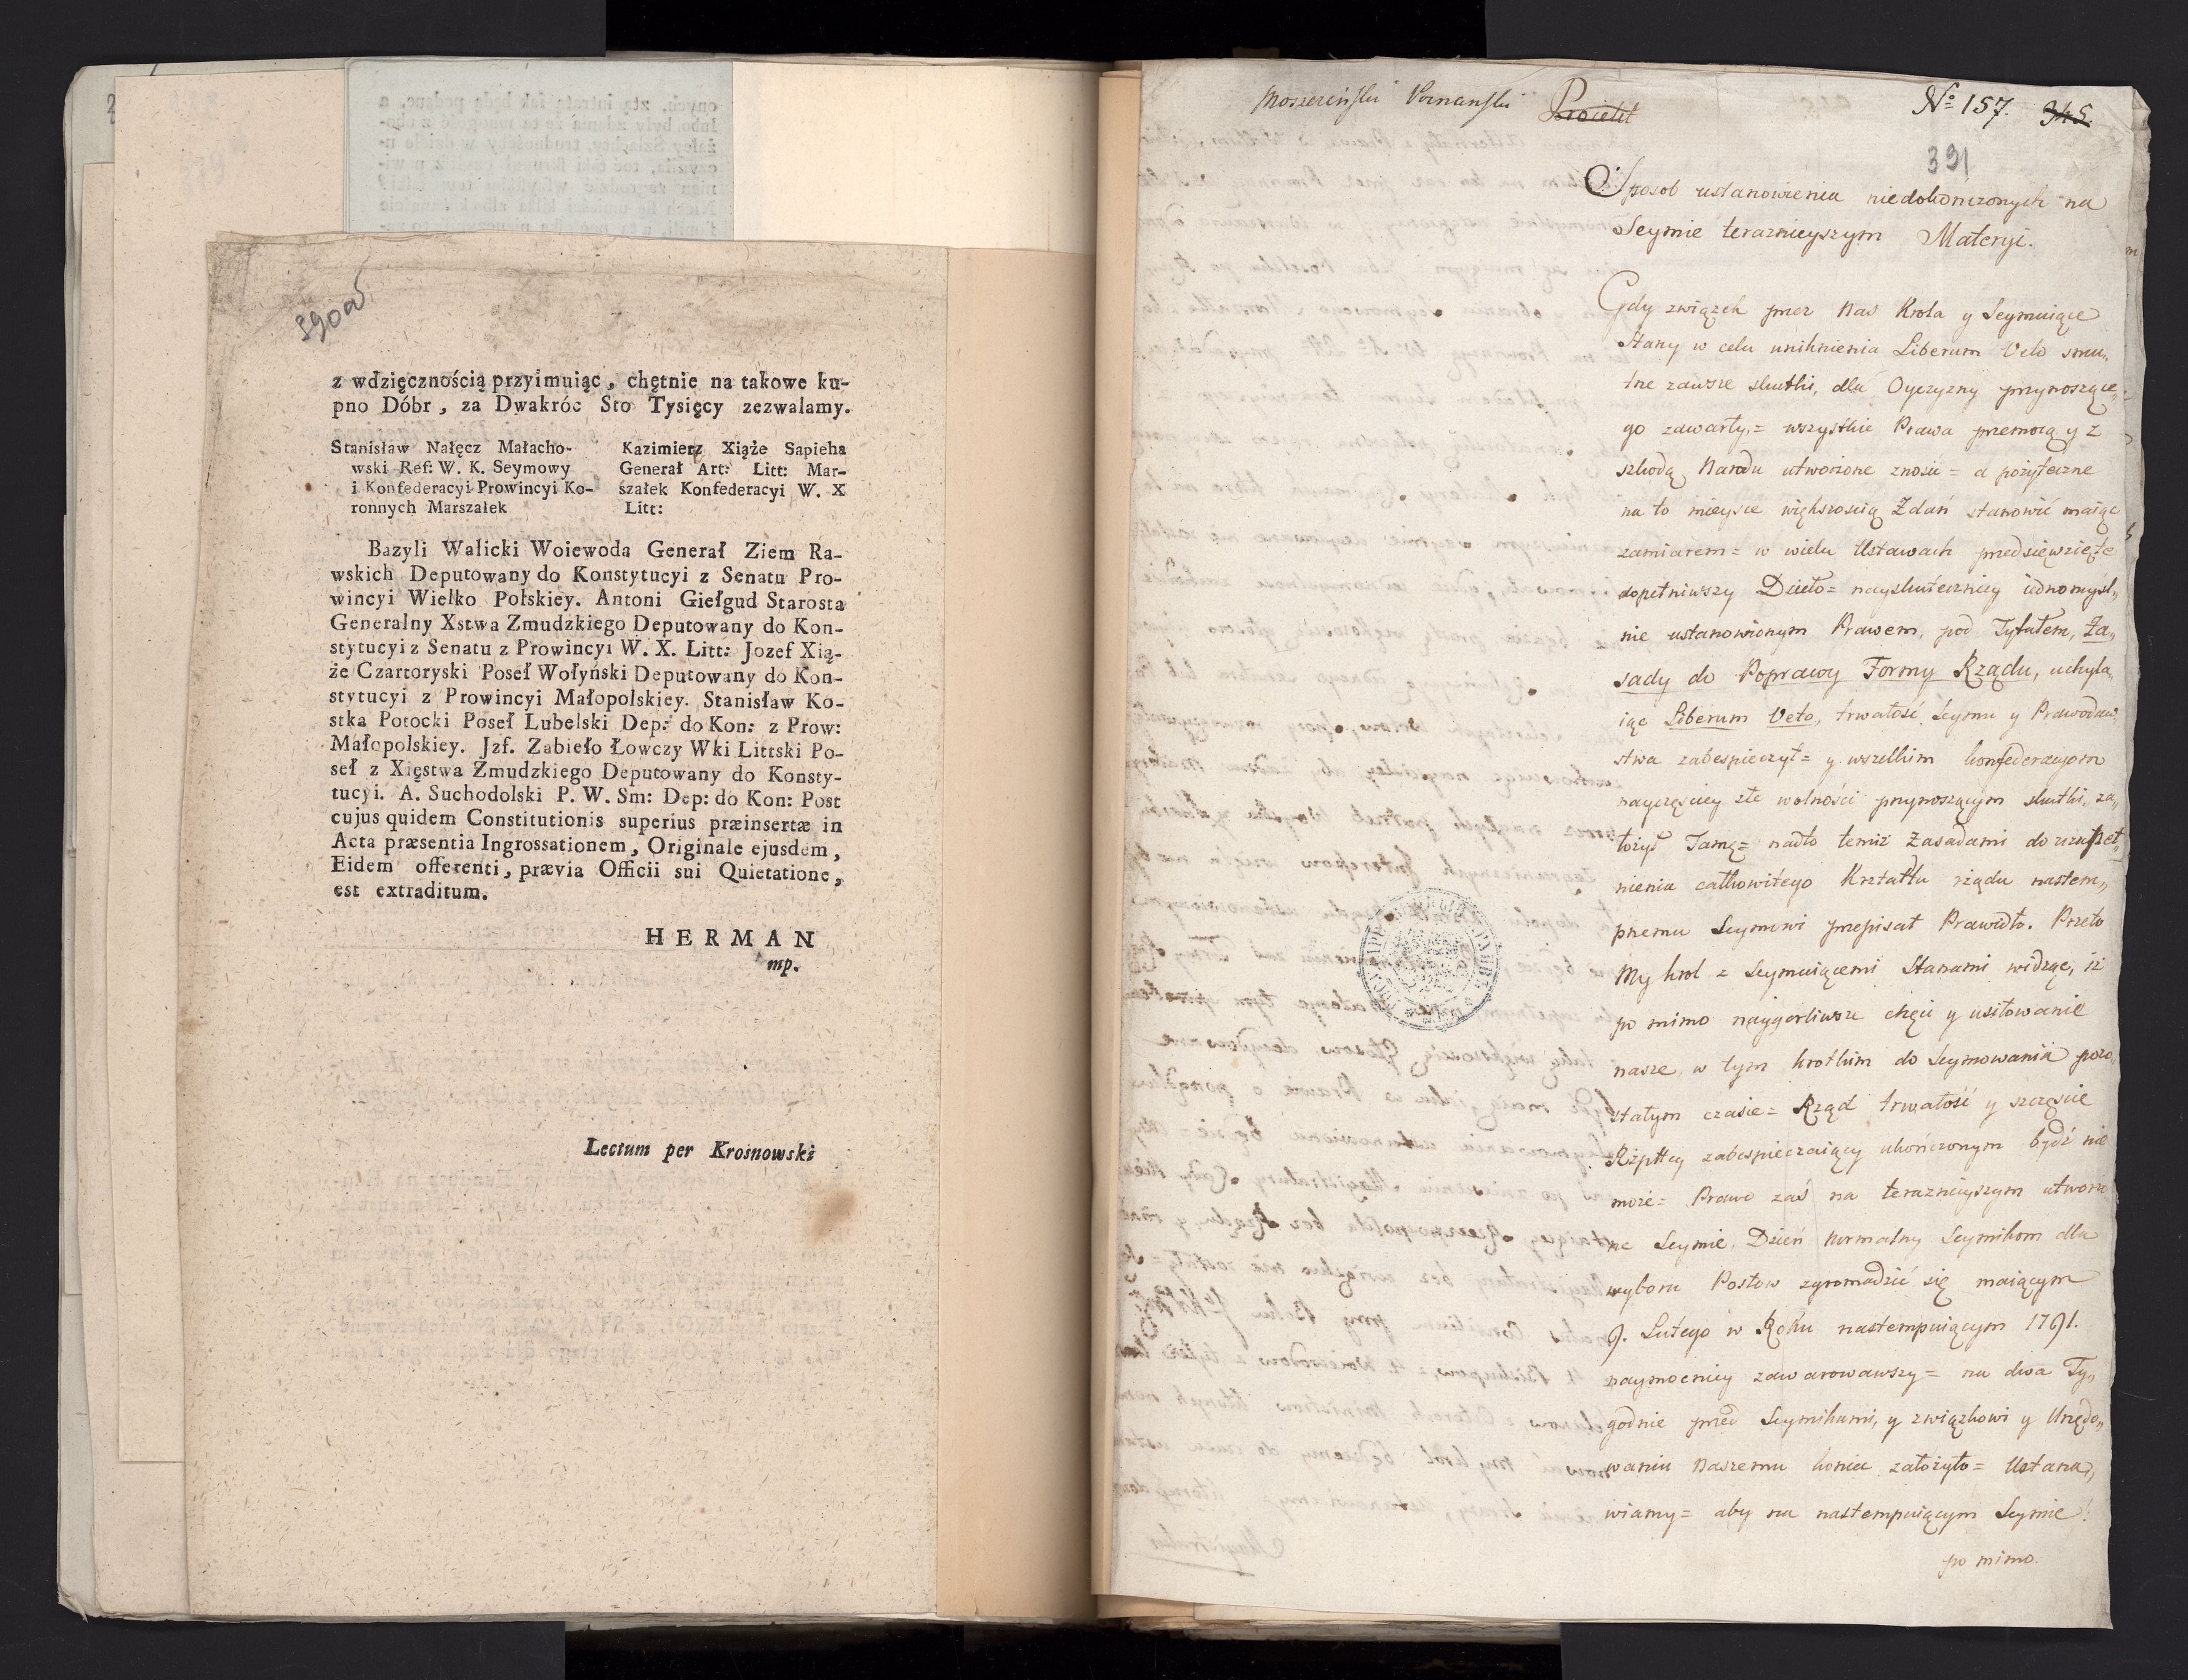 390a
z wdzięcznością przyimuiąc, chętnie na takowe ku-
pno Dóbr, za Dwakróc Sto Tysięcy zezwalamy.
Stanisław Nałęcz Małacho-
wski Ref: W. K. Seymowy
i Konfederacyi Prowincyi Ko-
ronnych Marszałek
Kazimierz Xiąże Sapieha
Generał Art: Litt: Mar-
szałek Konfederacyi W. X
Litt:
Bazyli Walicki Woiewoda Generał Ziem Ra-
wskich Deputowany do Konstytucyi z Senatu Pro-
wincyi Wielko Polskiey. Antoni Giełgud Starosta
Generalny Xstwa Zmudzkiego Deputowany do Kon-
stytucyi z Senatu z Prowincyi W. X. Litt: Jozef Xią-
że Czartoryski Poseł Wołyński Deputowany do Kon-
stytucyi z Prowincyi Małopolskiey. Stanisław Ko-
stka Potocki Poseł Lubelski Dep: do Kon: z Prow:
Małopolskiey. Jzf. Zabieło Łowczy Wki Littski Po-
seł z Xięstwa Zmudzkiego Deputowany do Konsty-
tucyi. A. Suchodolski P. W. Sm: Dep: do Kon: Post
cujus quidem Constitutionis superius præinsertæ in
Acta præsentia Ingrossationem, Originale ejusdem,
Eidem offerenti, prævia Officii sui Quietatione,
est extraditum.
HERMAN
mp.
Lectum per Krosnowski
Moszczeński Poznanski Proiekt
No 157. 345.
391
Sposob ustanowienia niedokończonych na
Seymie teraznieyszym Materyi.
Gdy związek przez Nas Krola y Seymuiące
Stany w celu uniknienia Liberum Veto smu„
tne zawsze skutki, dla Oyczyzny przynoszące„
go zawarty,= wszystkie Prawa przemocą y z
szkodą Narodu utworzone znosić = a pożyteczne
na to mieysce większością Zdań stanowić maiąc
zamiarem = w wielu Ustawach przedsięwzięte
dopełniwszy Dzieło = nayskuteczniey iednomyśl„
nie ustanowionym Prawem, pod Tytułem, Za„
sady do Poprawy Formy Rządu, uchyla„
iąc Liberum Veto, trwałość Seymu y Prawodaw„
stwa zabespieczył = y wszelkim konfederacyom
nayczęściey złe wolności przynoszącym skutki, za„
łożył Tamę = nadto temiż Zasadami do uzupeł„
nienia całkowitego Kształtu rządu nastem„
pnemu Seymowi przepisał Prawidło. Przeto
My krol z Seymuiącemi Stanami widząc, iż
po mimo naygorliwsze chęci y usiłowanie
nasze w tym krotkim do Seymowania pozo„
stałym czasie = Rząd trwałość y szczęście
Rzpltey zabespieczaiący ukończonym bydź nie
może = Prawo zaś na teraznieyszym utworzo
ne Seymie, Dzień normalny Seymikom dla
wyboru Posłow zgromadzić się maiącym
9. Lutego w Roku nastempuiącym 1791.
naymocniey zawarowawszy = na dwa Ty„
godnie przed Seymikami, y związkowi y Urzędo„
waniu Naszemu koniec założyło = Ustana„
wiamy = aby na nastempuiącym Seymie!
po mimo.